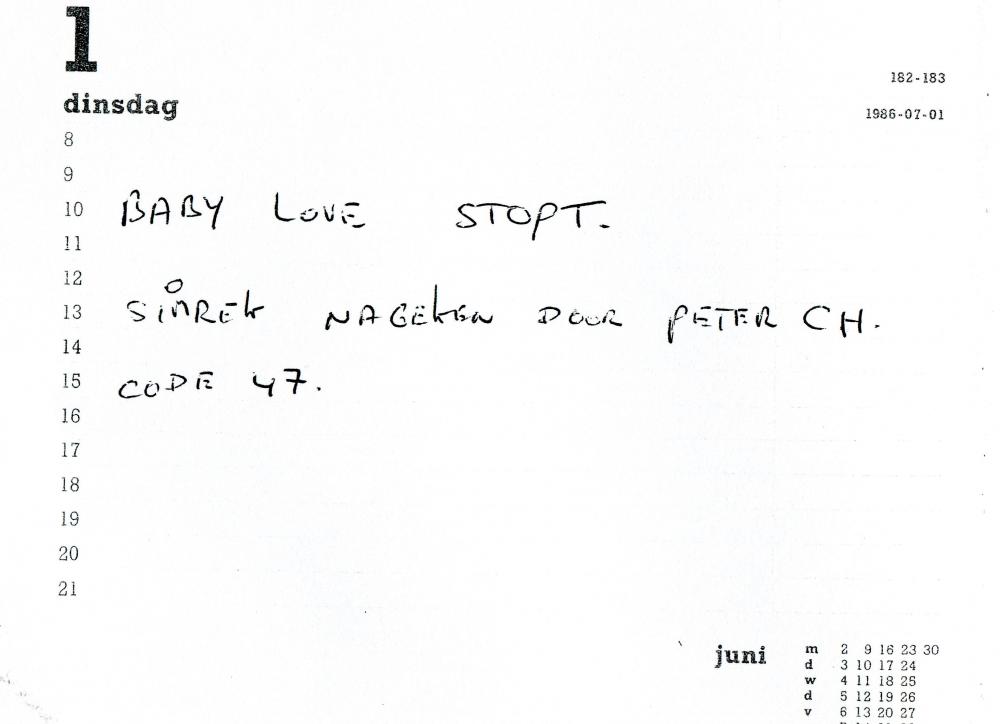 1
dinsdag
182-183
1986-07-01
8
9
10 BABY LOVE STOPT.
11
12
13 NAGEKEN DOOR PETER CH.
14
15 CODE 47.
16
17
18
19
20
21
juni
m 2 9 16 23 30
d 3 10 17 24
w 4 11 18 25
d 5 12 19 26
v 6 13 20 27